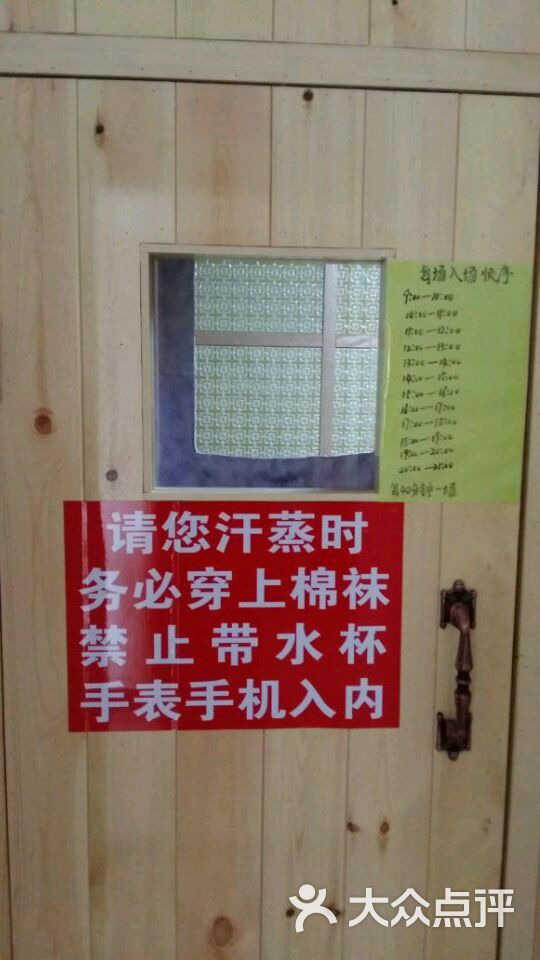 每场入场顺序
9:00—10:00
10:00—11:00
11:00—12:00
12:00—13:00
13:00—14:00
14:00—15:00
15:00—16:00
16:00—17:00
17:00—18:00
18:00—19:00
19:00—20:00
20:00—21:00
每40分钟一场
请您汗蒸时
务必穿上棉袜
禁止带水杯
手表手机入内
大众点评